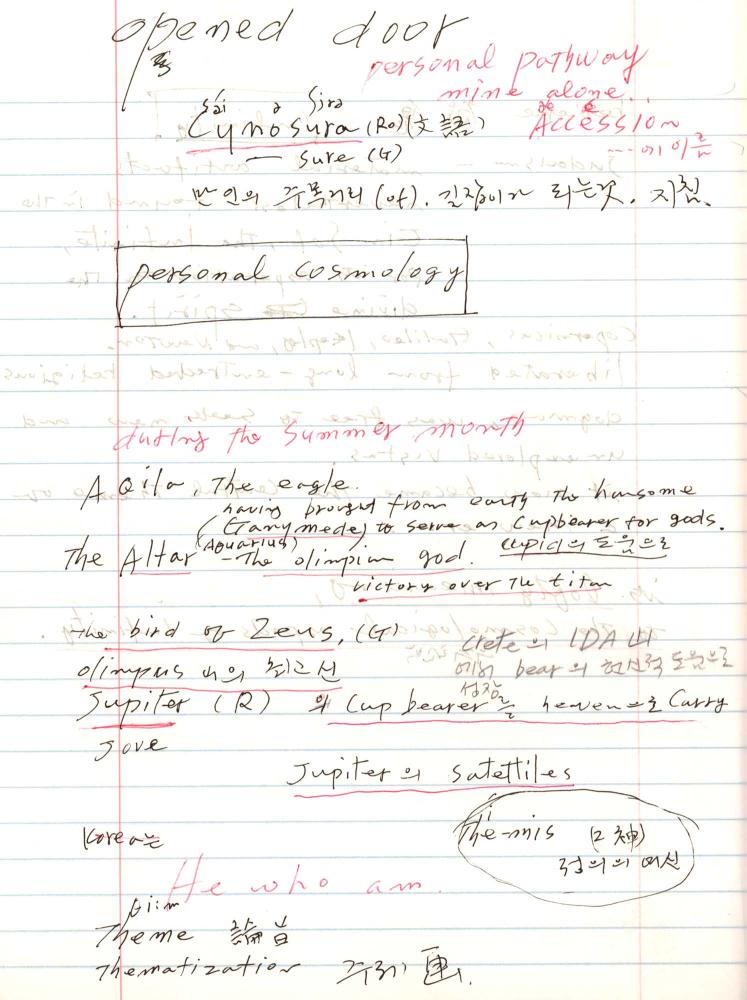 opened door
personal pathway
mine alone...
sái ə Sirə
Cynosura (Ro)(文語)
Accession
....에 이름
— sure (G)
만인의 주목거리 (아). 길잡이가 되는것. 지침.
personal cosmology
during the summer month
Aqila, The eagle.
having brought from earth the hansome
(Ganymede) to serve as Cupbearer for gods.
(Aquarius)
The Altar - The olimpian god. cupid의 도움으로
victory over the titan
The bird of Zeus, (G)
crete의 IDA 山
olimpus 山의 최고신
에서 bear의 헌신적 도움으로
성장
Jupiter (R) 의 Cup bearer를 heaven으로 Carry
Jove
Jupiter의 satettiles
Korea는
The-mis (2神)
정의의 여신
He who am.
Theme 論旨
Thematization 주제 画.